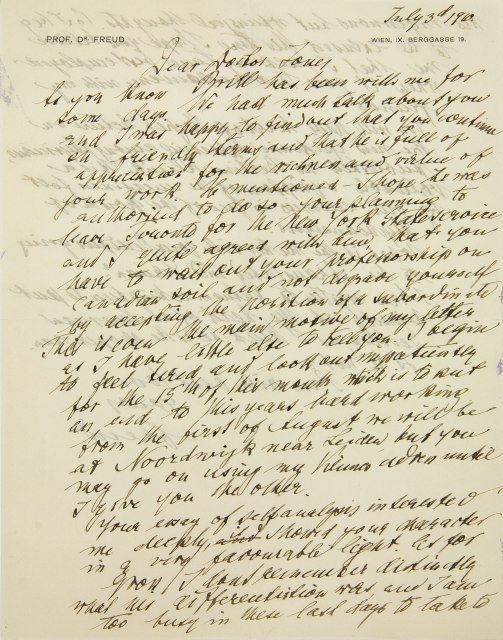 July 3d 1910
PROF. DR FREUD
WIEN, IX. BERGGASSE 19.
Dear Doctor Jones
As you know Brill has been with me for
some days. We had much talk about you
and I was happy to find out that you continue
on friendly terms and that he is full of
appreciation for the richness and virtue of
your work. He mentioned - I hope he was
authorised to do so - your planning to
leave Toronto for the New York State service
and I quite agreed with him, that you
have to wait out your professorship on
Canadian soil and not degrade yourself
by accepting the position of a subordinate
This is even the main motive of my letter
as I have little else to tell you. I begin
to feel tired and look out impatiently
for the 15th of this month which is to put
an end to this years hard working
from the first of August we will be
at Noordwijk near Leiden but you
may go on using my Vienna adress until
I give you the other.
Your essay of selfanalysis interested
me deeply, and shows your character
in a very favourable light. As for
Gross I dont remember distinctly
what his differentiation was and I am
too busy in these last days to take to